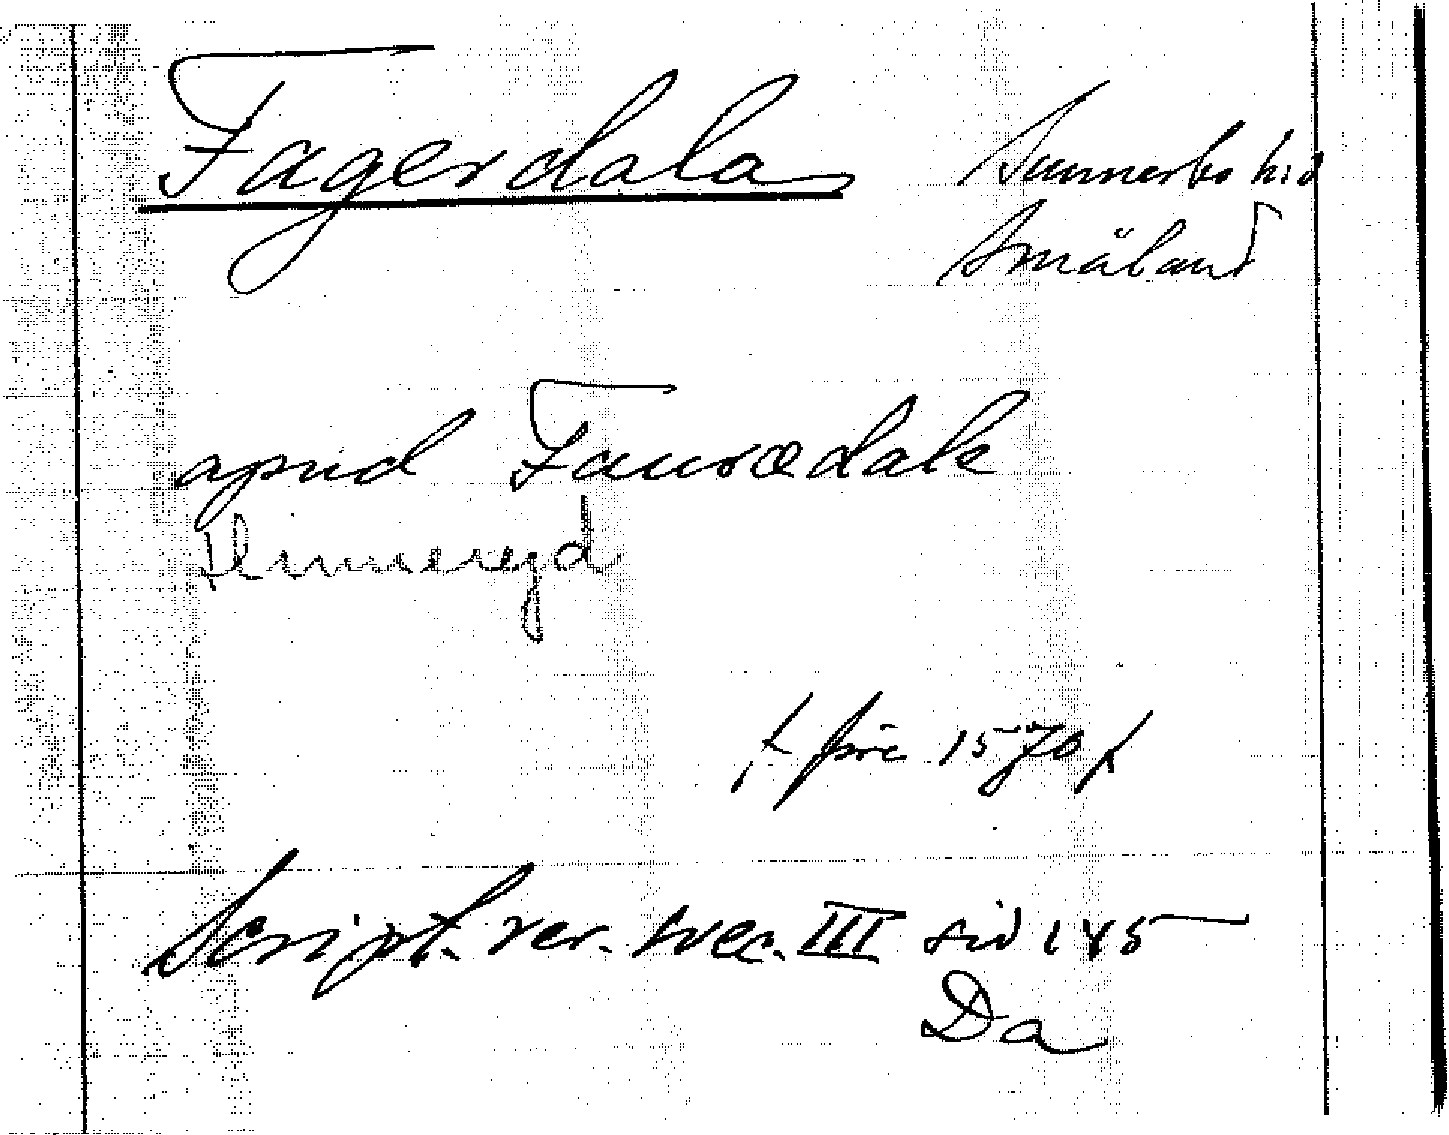 Fagerdala Sunnerbo hrd
Småland
apud Faurædale
Hinneryd
/ före 1570 /
Script. rer. svec. III sid 145
Da